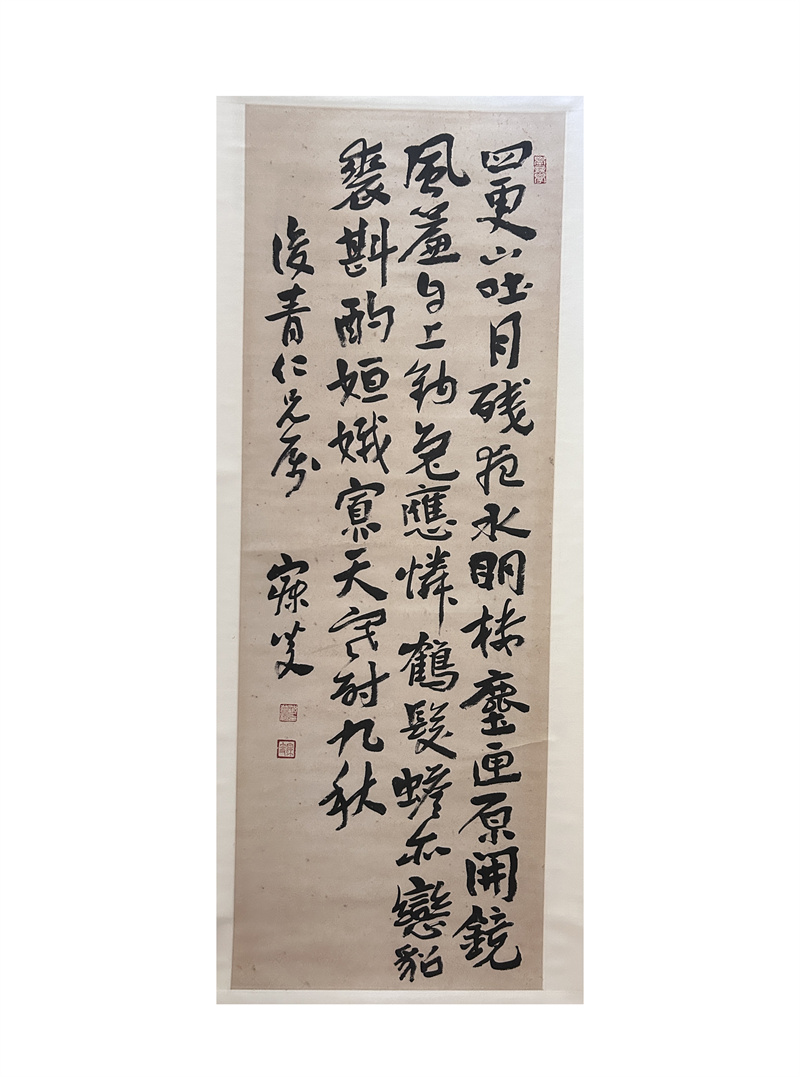 四更山吐月殘夜水明樓塵匣原開鏡
風簾自上鈎兔應憐鶴髮蟾亦戀貂
裘斟酌姮娥寡天寒耐九秋
青仁兄属 寐叟